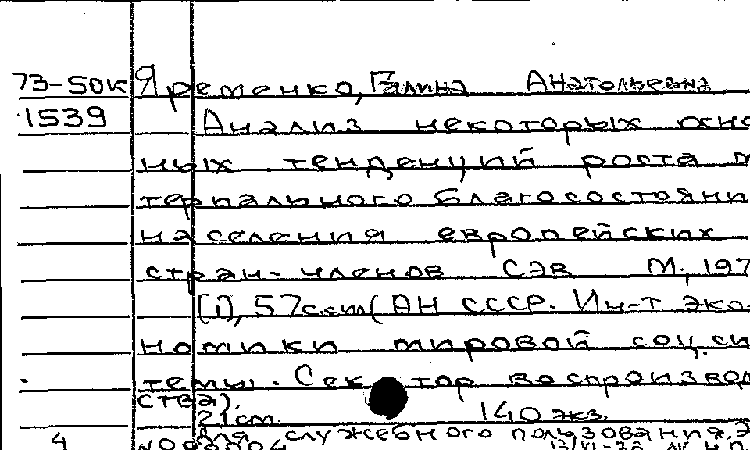 73-50к Яременко, Галина Анатольевна
1539 Анализ некоторых осно
ных тенденций роста м
териального благосостояни
населения европейских
стран-членов СЭВ М, 197
[1], 57с.ст (АН СССР. Ин-т эко
номики мировой соц.си
темы. Сектор воспроизвод
ства).
21см. 140 экз.
4 Для служебного пользования. Э